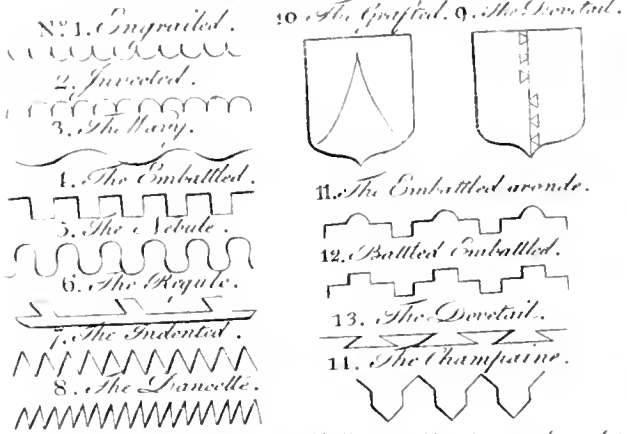 Nº 1. Engrailed.
2. Invected.
3. The Wavy.
4. The Embattled.
5. The Nebule.
6. The Regule.
7. The Indented.
8. The Dancette.
10 The Grafted. 9. The Dovetail.
11. The Embattled aronde.
12. Battled Embattled.
13. The Dovetail.
14. The Champaine.